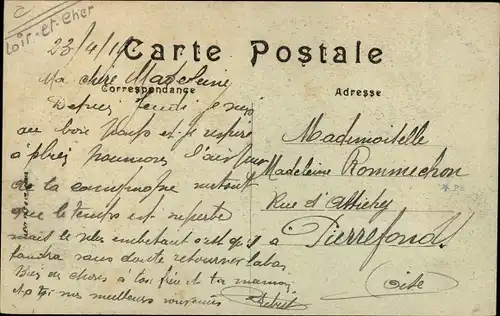 Loir-et-Cher
Carte Postale
Correspondance
Adresse
23/4/1
Ma chère Madeleine
Depuis Jeudi je suis
au bois et je respire
à pleins poumons l'air pur
de la campagne surtout
que le temps est superbe
mais le plus embêtant c'est qu'il
faudra sans doute retourner labas.
Bien des choses à ton frère et ta maman
et à toi mes meilleurs souvenirs
Mademoiselle
Madeleine Rommechon
Rue d'Attichy
à Pierrefonds
Oise